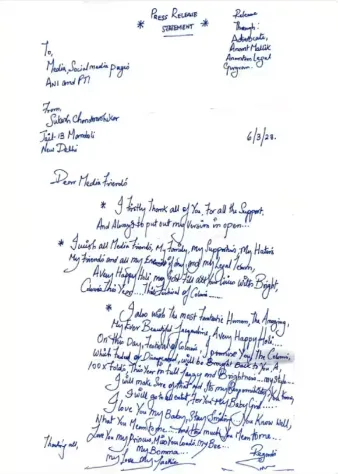 * PRESS RELEASE
STATEMENT *
Release
Through:
Advocate,
Anant Malik
Anantam Legal
Gurgram
To,
Media, Social media pages
ANI and PTI
From,
Sukash Chandrashekar
Jail-13 Mandoli
New Delhi
6/3/23.
Dear Media Friends
* I firstly Thank all of You, For all the Support,
And Always to put out my Version in open...
* I wish all Media Friends, My Family, my Supporters, My Haters
My Friends and all my and my Legal Team,
A very Happy Holi may God fill all our Lives with Bright
Colours This Year... This Festival of Colours
* I also wish The most Fantastic Human, The Amazing,
My Ever Beautiful Jacqueline A very Happy Holi...
On this Day, Festival of Colours, I Promise You, The Colours,
Which faded or Disappeared, will be Brought Back To You,
100 x Folds, This Year in full and Brightness... my Style...
I will make Sure of that and Its my Responsibility You Know,
I will go to any extent For You My Baby Girl
I love You my Baby, Stay Smiling, You Know Well,
What You Mean to me... And How much you mean to me...
Love You my Princess, Miss You Loads, My Bee...
My Bomma...
My Love My Jackie
Thanking all,